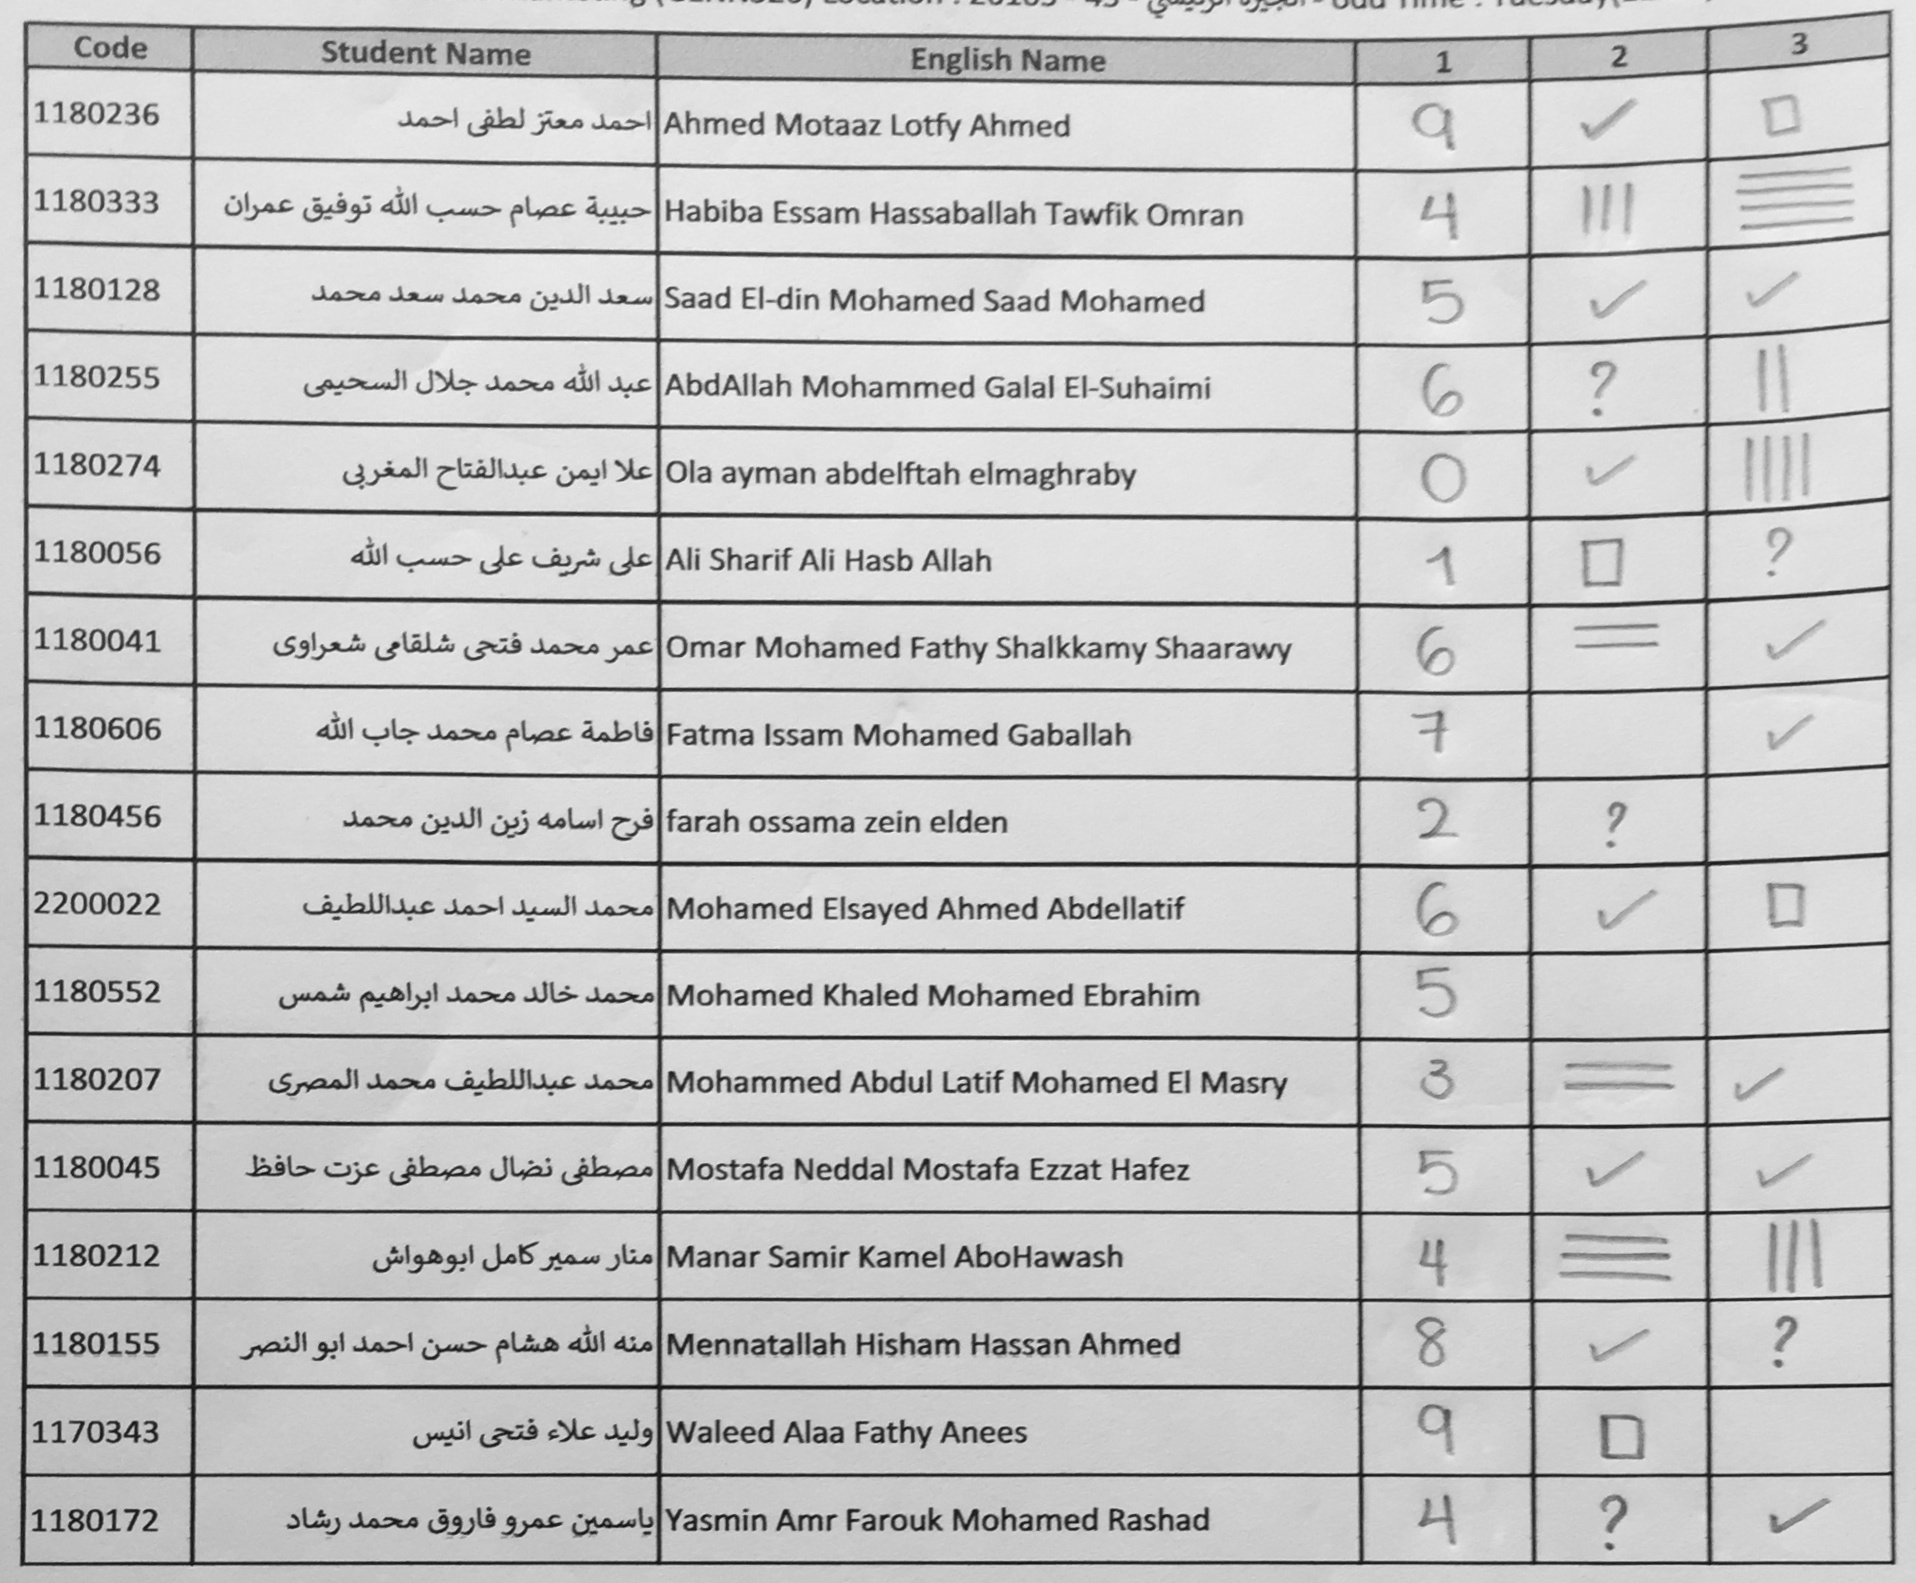 Code Student Name English Name 1 2 3
1180236 احمد معتز لطفى احمد Ahmed Motaaz Lotfy Ahmed 9 ✓ □
1180333 حبيبة عصام حسب الله توفيق عمران Habiba Essam Hassaballah Tawfik Omran 4 ||| ☰
1180128 سعد الدين محمد سعد محمد Saad El-din Mohamed Saad Mohamed 5 ✓ ✓
1180255 عبد الله محمد جلال السحيمى AbdAllah Mohammed Galal El-Suhaimi 6 ? ||
1180274 علا ايمن عبدالفتاح المغربى Ola ayman abdelftah elmaghraby 0 ✓ ||||
1180056 على شريف على حسب الله Ali Sharif Ali Hasb Allah 1 □ ?
1180041 عمر محمد فتحى شلقامى شعراوى Omar Mohamed Fathy Shalkkamy Shaarawy 6 = ✓
1180606 فاطمة عصام محمد جاب الله Fatma Issam Mohamed Gaballah 7 ✓
1180456 فرح اسامه زين الدين محمد farah ossama zein elden 2 ?
2200022 محمد السيد احمد عبداللطيف Mohamed Elsayed Ahmed Abdellatif 6 ✓ □
1180552 محمد خالد محمد ابراهيم شمس Mohamed Khaled Mohamed Ebrahim 5
1180207 محمد عبداللطيف محمد المصرى Mohammed Abdul Latif Mohamed El Masry 3 = ✓
1180045 مصطفى نضال مصطفى عزت حافظ Mostafa Neddal Mostafa Ezzat Hafez 5 ✓ ✓
1180212 منار سمير كامل ابوهواش Manar Samir Kamel AboHawash 4 ≡ |||
1180155 منه الله هشام حسن احمد ابو النصر Mennatallah Hisham Hassan Ahmed 8 ✓ ?
1170343 وليد علاء فتحى انيس Waleed Alaa Fathy Anees 9 □
1180172 ياسمين عمرو فاروق محمد رشاد Yasmin Amr Farouk Mohamed Rashad 4 ? ✓